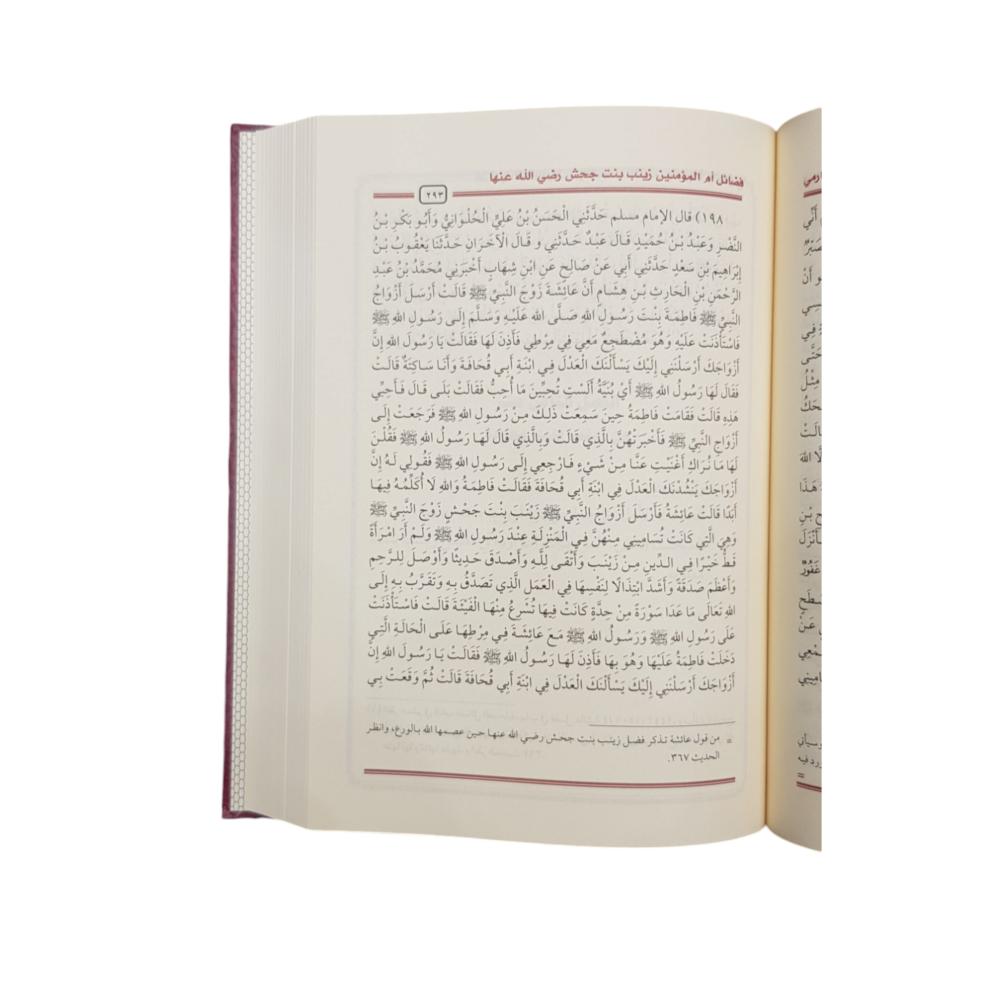 فضائل أم المؤمنين زينب بنت جحش رضي الله عنها
٢٩٣
١٩٨) قال الإمام مسلم حَدَّثَنِي الْحَسَنُ بْنُ عَلِيٍّ الْحُلْوَانِيُّ وَأَبُو بَكْرِ بْنُ
النَّضْرِ وَعَبْدُ بْنُ حُمَيْدٍ قَالَ عَبْدٌ حَدَّثَنِي و قَالَ الْآخَرَانِ حَدَّثَنَا يَعْقُوبُ بْنُ
إِبْرَاهِيمَ بْنِ سَعْدٍ حَدَّثَنِي أَبِي عَنْ صَالِحٍ عَنِ ابْنِ شِهَابٍ أَخْبَرَنِي مُحَمَّدُ بْنُ عَبْدِ
الرَّحْمَنِ بْنِ الْحَارِثِ بْنِ هِشَامٍ أَنَّ عَائِشَةَ زَوْجَ النَّبِيِّ ﷺ قَالَتْ أَرْسَلَ أَزْوَاجُ
النَّبِيِّ ﷺ فَاطِمَةَ بِنْتَ رَسُولِ اللهِ صَلَّى الله عَلَيْهِ وَسَلَّمَ إِلَى رَسُولِ اللهِ ﷺ
فَاسْتَأْذَنَتْ عَلَيْهِ وَهُوَ مُضْطَجِعٌ مَعِي فِي مِرْطِي فَأَذِنَ لَهَا فَقَالَتْ يَا رَسُولَ اللهِ إِنَّ
أَزْوَاجَكَ أَرْسَلْنَنِي إِلَيْكَ يَسْأَلْنَكَ الْعَدْلَ فِي ابْنَةِ أَبِي قُحَافَةَ وَأَنَا سَاكِتَةٌ قَالَتْ
فَقَالَ لَهَا رَسُولُ اللهِ ﷺ أَيْ بُنَيَّةُ أَلَسْتِ تُحِبِّينَ مَا أُحِبُّ فَقَالَتْ بَلَى قَالَ فَأَحِبِّي
هَذِهِ قَالَتْ فَقَامَتْ فَاطِمَةُ حِينَ سَمِعَتْ ذَلِكَ مِنْ رَسُولِ اللهِ ﷺ فَرَجَعَتْ إِلَى
أَزْوَاجِ النَّبِيِّ ﷺ فَأَخْبَرَتْهُنَّ بِالَّذِي قَالَتْ وَبِالَّذِي قَالَ لَهَا رَسُولُ اللهِ ﷺ فَقُلْنَ
لَهَا مَا نُرَاكِ أَغْنَيْتِ عَنَّا مِنْ شَيْءٍ فَارْجِعِي إِلَى رَسُولِ اللهِ ﷺ فَقُولِي لَهُ إِنَّ
أَزْوَاجَكَ يَنْشُدْنَكَ الْعَدْلَ فِي ابْنَةِ أَبِي قُحَافَةَ فَقَالَتْ فَاطِمَةُ وَاللهِ لَا أُكَلِّمُهُ فِيهَا
أَبَدًا قَالَتْ عَائِشَةُ فَأَرْسَلَ أَزْوَاجُ النَّبِيِّ ﷺ زَيْنَبَ بِنْتَ جَحْشٍ زَوْجَ النَّبِيِّ ﷺ
وَهِيَ الَّتِي كَانَتْ تُسَامِينِي مِنْهُنَّ فِي الْمَنْزِلَةِ عِنْدَ رَسُولِ اللهِ ﷺ وَلَمْ أَرَ امْرَأَةً
قَطُّ خَيْرًا فِي الدِّينِ مِنْ زَيْنَبَ وَأَتْقَى لِلَّهِ وَأَصْدَقَ حَدِيثًا وَأَوْصَلَ لِلرَّحِمِ
وَأَعْظَمَ صَدَقَةً وَأَشَدَّ ابْتِذَالًا لِنَفْسِهَا فِي الْعَمَلِ الَّذِي تَصَدَّقُ بِهِ وَتَقَرَّبُ بِهِ إِلَى
اللهِ تَعَالَى مَا عَدَا سَوْرَةً مِنْ حِدَّةٍ كَانَتْ فِيهَا تُسْرِعُ مِنْهَا الْفَيْئَةَ قَالَتْ فَاسْتَأْذَنَتْ
عَلَى رَسُولِ اللهِ ﷺ وَرَسُولُ اللهِ ﷺ مَعَ عَائِشَةَ فِي مِرْطِهَا عَلَى الْحَالَةِ الَّتِي
دَخَلَتْ فَاطِمَةُ عَلَيْهَا وَهُوَ بِهَا فَأَذِنَ لَهَا رَسُولُ اللهِ ﷺ فَقَالَتْ يَا رَسُولَ اللهِ إِنَّ
أَزْوَاجَكَ أَرْسَلْنَنِي إِلَيْكَ يَسْأَلْنَكَ الْعَدْلَ فِي ابْنَةِ أَبِي قُحَافَةَ قَالَتْ ثُمَّ وَقَعَتْ بِي
= من قول عائشة تذكر فضل زينب بنت جحش رضي الله عنها حين عصمها الله بالورع، وانظر
الحديث ٣٦٧.